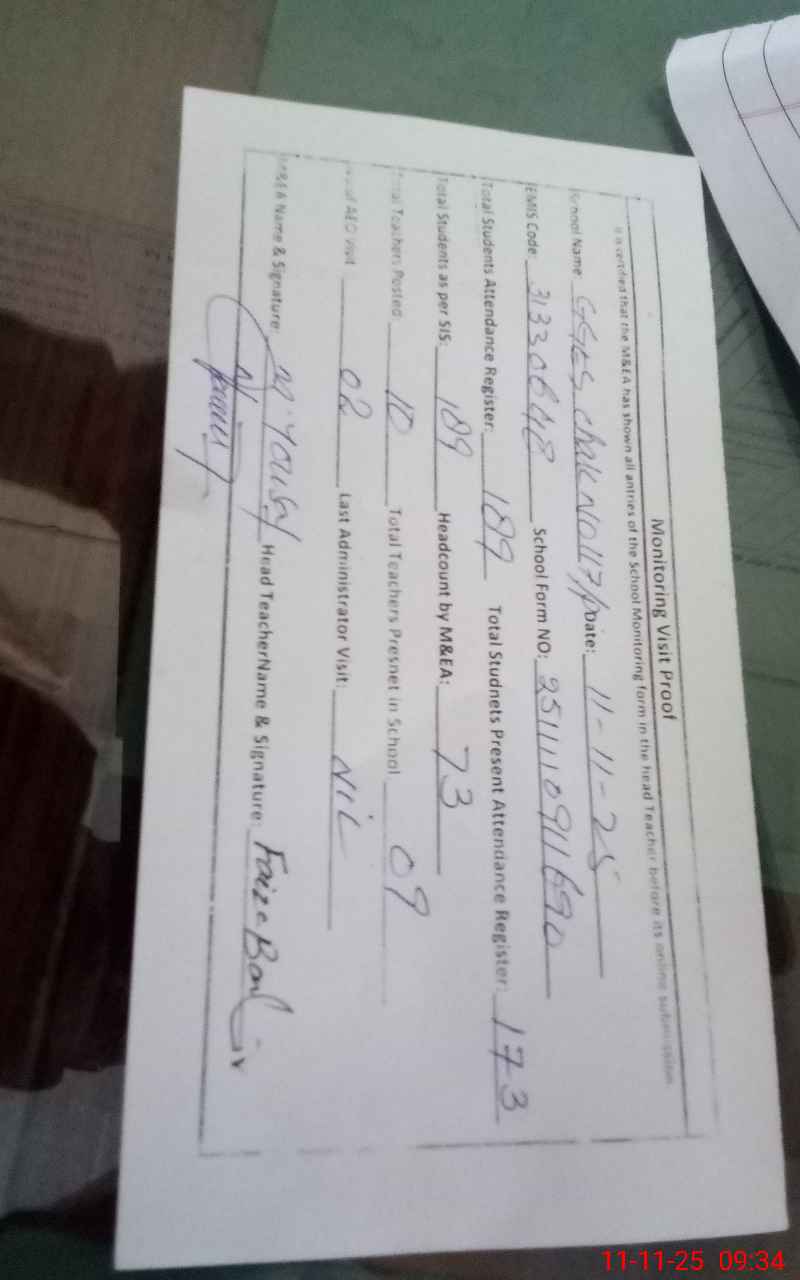 Monitoring Visit Proof
It is certified that the M&EA has shown all antries of the School Monitoring form in the head Teacher before its online submission
School Name: GGES Chak No 117/P Date: 11-11-25
EMIS Code: 31330648 School Form NO: 251111091169
Total Students Attendance Register: 189 Total Studnets Present Attendance Register: 173
Total Students as per SIS: 189 Headcount by M&EA: 73
Total Teachers Posted: 10 Total Teachers Presnet in School 09
of AEO visit 02 Last Administrator Visit: Nil
M&EA Name & Signature: M. Yousaf Head TeacherName & Signature: Faiza
11-11-25 09:34